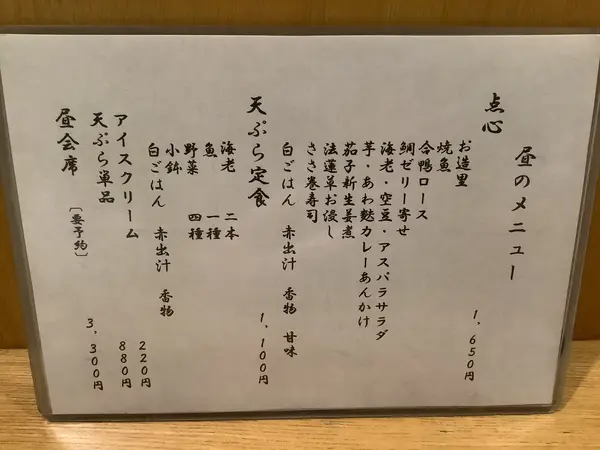 昼のメニュー
点心 1,650円
お造里
焼魚
合鴨ロース
鯛ゼリー寄せ
海老・空豆・アスパラサラダ
芋・あわ麩カレーあんかけ
茄子新生姜煮
法蓮草お浸し
ささ巻寿司
白ごはん 赤出汁 香物 甘味
天ぷら定食 1,100円
海老 二本
魚 一種
野菜 四種
小鉢
白ごはん 赤出汁 香物
アイスクリーム 220円
天ぷら単品 880円
昼会席〔要予約〕 3,300円